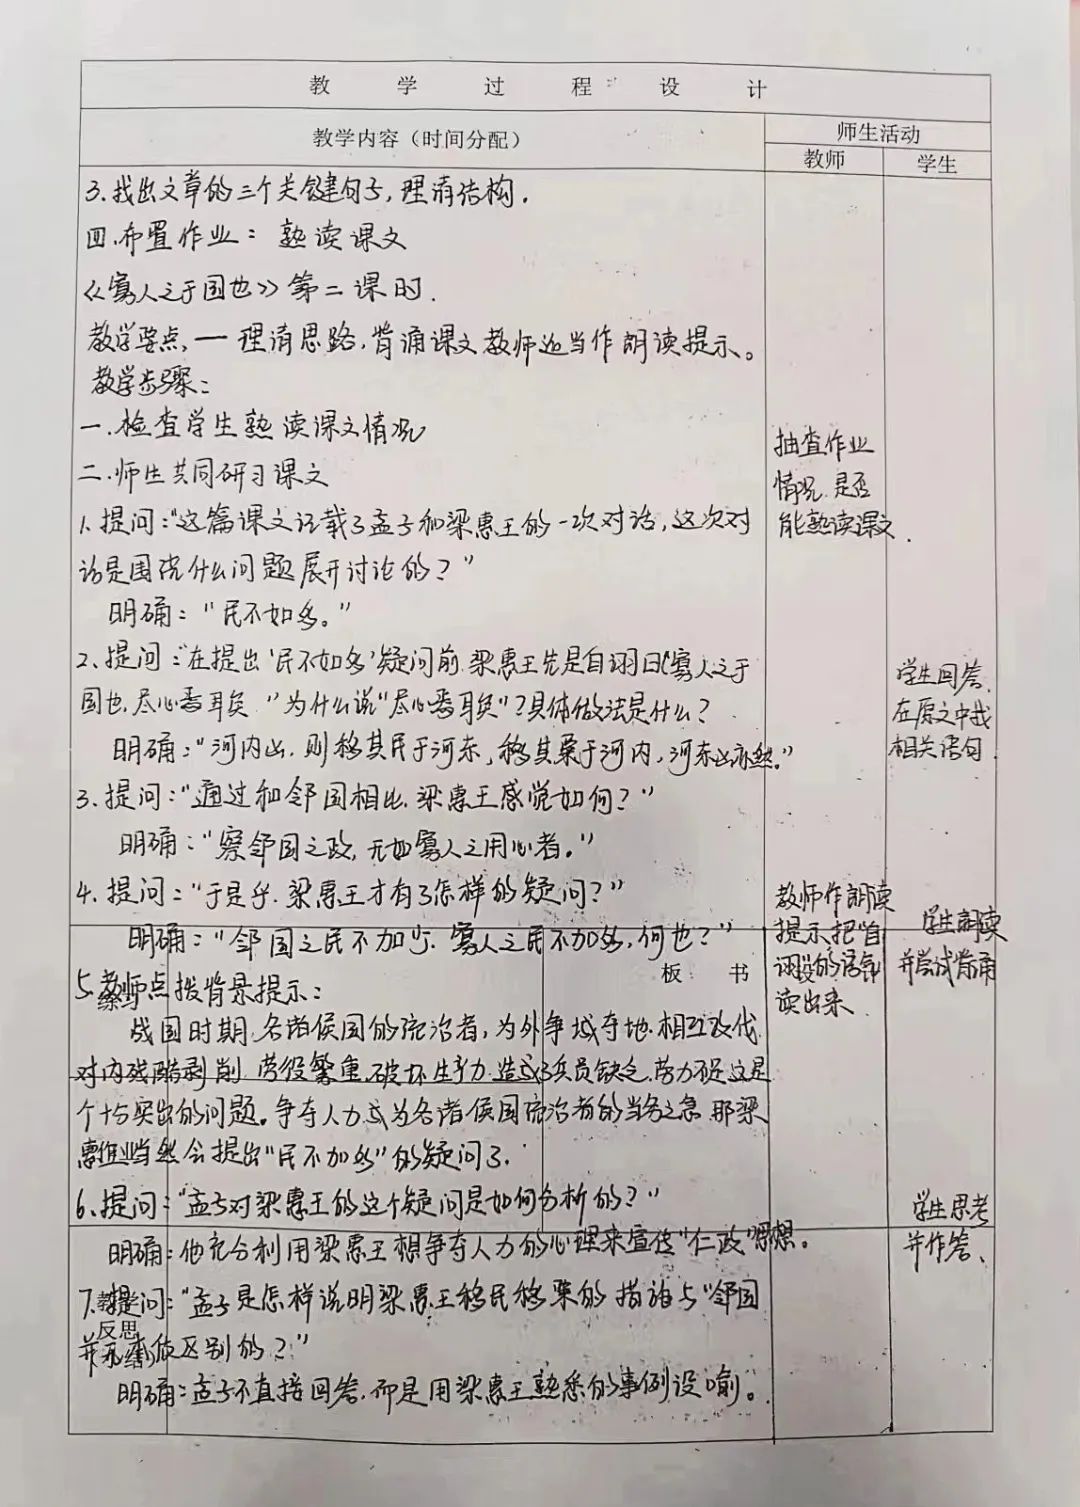 教 学 过 程 设 计
教学内容（时间分配）
师生活动
教师
学生
3.找出文章的三个关键句子，理清结构．
四.布置作业：熟读课文
《寡人之于国也》第二课时．
教学要点，一理清思路，背诵课文教师适当作朗读提示。
教学步骤：
一．检查学生熟读课文情况
二.师生共同研习课文
1.提问："这篇课文记载了孟子和梁惠王的一次对话，这次对
话是围绕什么问题展开讨论的？"
明确："民不加多。"
2、提问："在提出'民不加多'疑问前．梁惠王先是自诩曰"寡人之于
国也，尽心焉耳矣 "为什么说"尽心焉耳矣"？具体做法是什么？
明确："河内凶，则移其民于河东，移其粟于河内，河东凶亦然。"
3.提问："通过和邻国相比，梁惠王感觉如何？"
明确："察邻国之政，无如寡人之用心者。"
4.提问："于是乎．梁惠王才有了怎样的疑问？"
明确："邻国之民不加少．寡人之民不加多，何也？"
板 书
5.教师点拨背景提示：
战国时期，各诸侯国的统治者，为外争城夺地．相互攻伐
对内残酷剥削．劳役繁重，破坏生产力．造成了兵员缺乏，劳力不足．这是
个十分突出的问题。争夺人力成为各诸侯国统治者的当务之急．那梁
惠王当然会提出"民不加多"的疑问了．
6、提问："孟子对梁惠王的这个疑问是如何分析的？"
明确：他充分利用梁惠王想争夺人力的心理来宣传"仁政"思想。
7.提问："孟子是怎样说明梁惠王移民移粟的措施与"邻国
反思
并无本质区别的？"
明确：孟子不直接回答，而是用梁惠王熟悉的事例设喻。
抽查作业
情况．是否
能熟读课文．
教师作朗读
提示．把"自
诩"的语气
读出来．
学生回答．
在原文中找
相关语句．
学生朗读
并尝试背诵
学生思考
并作答、